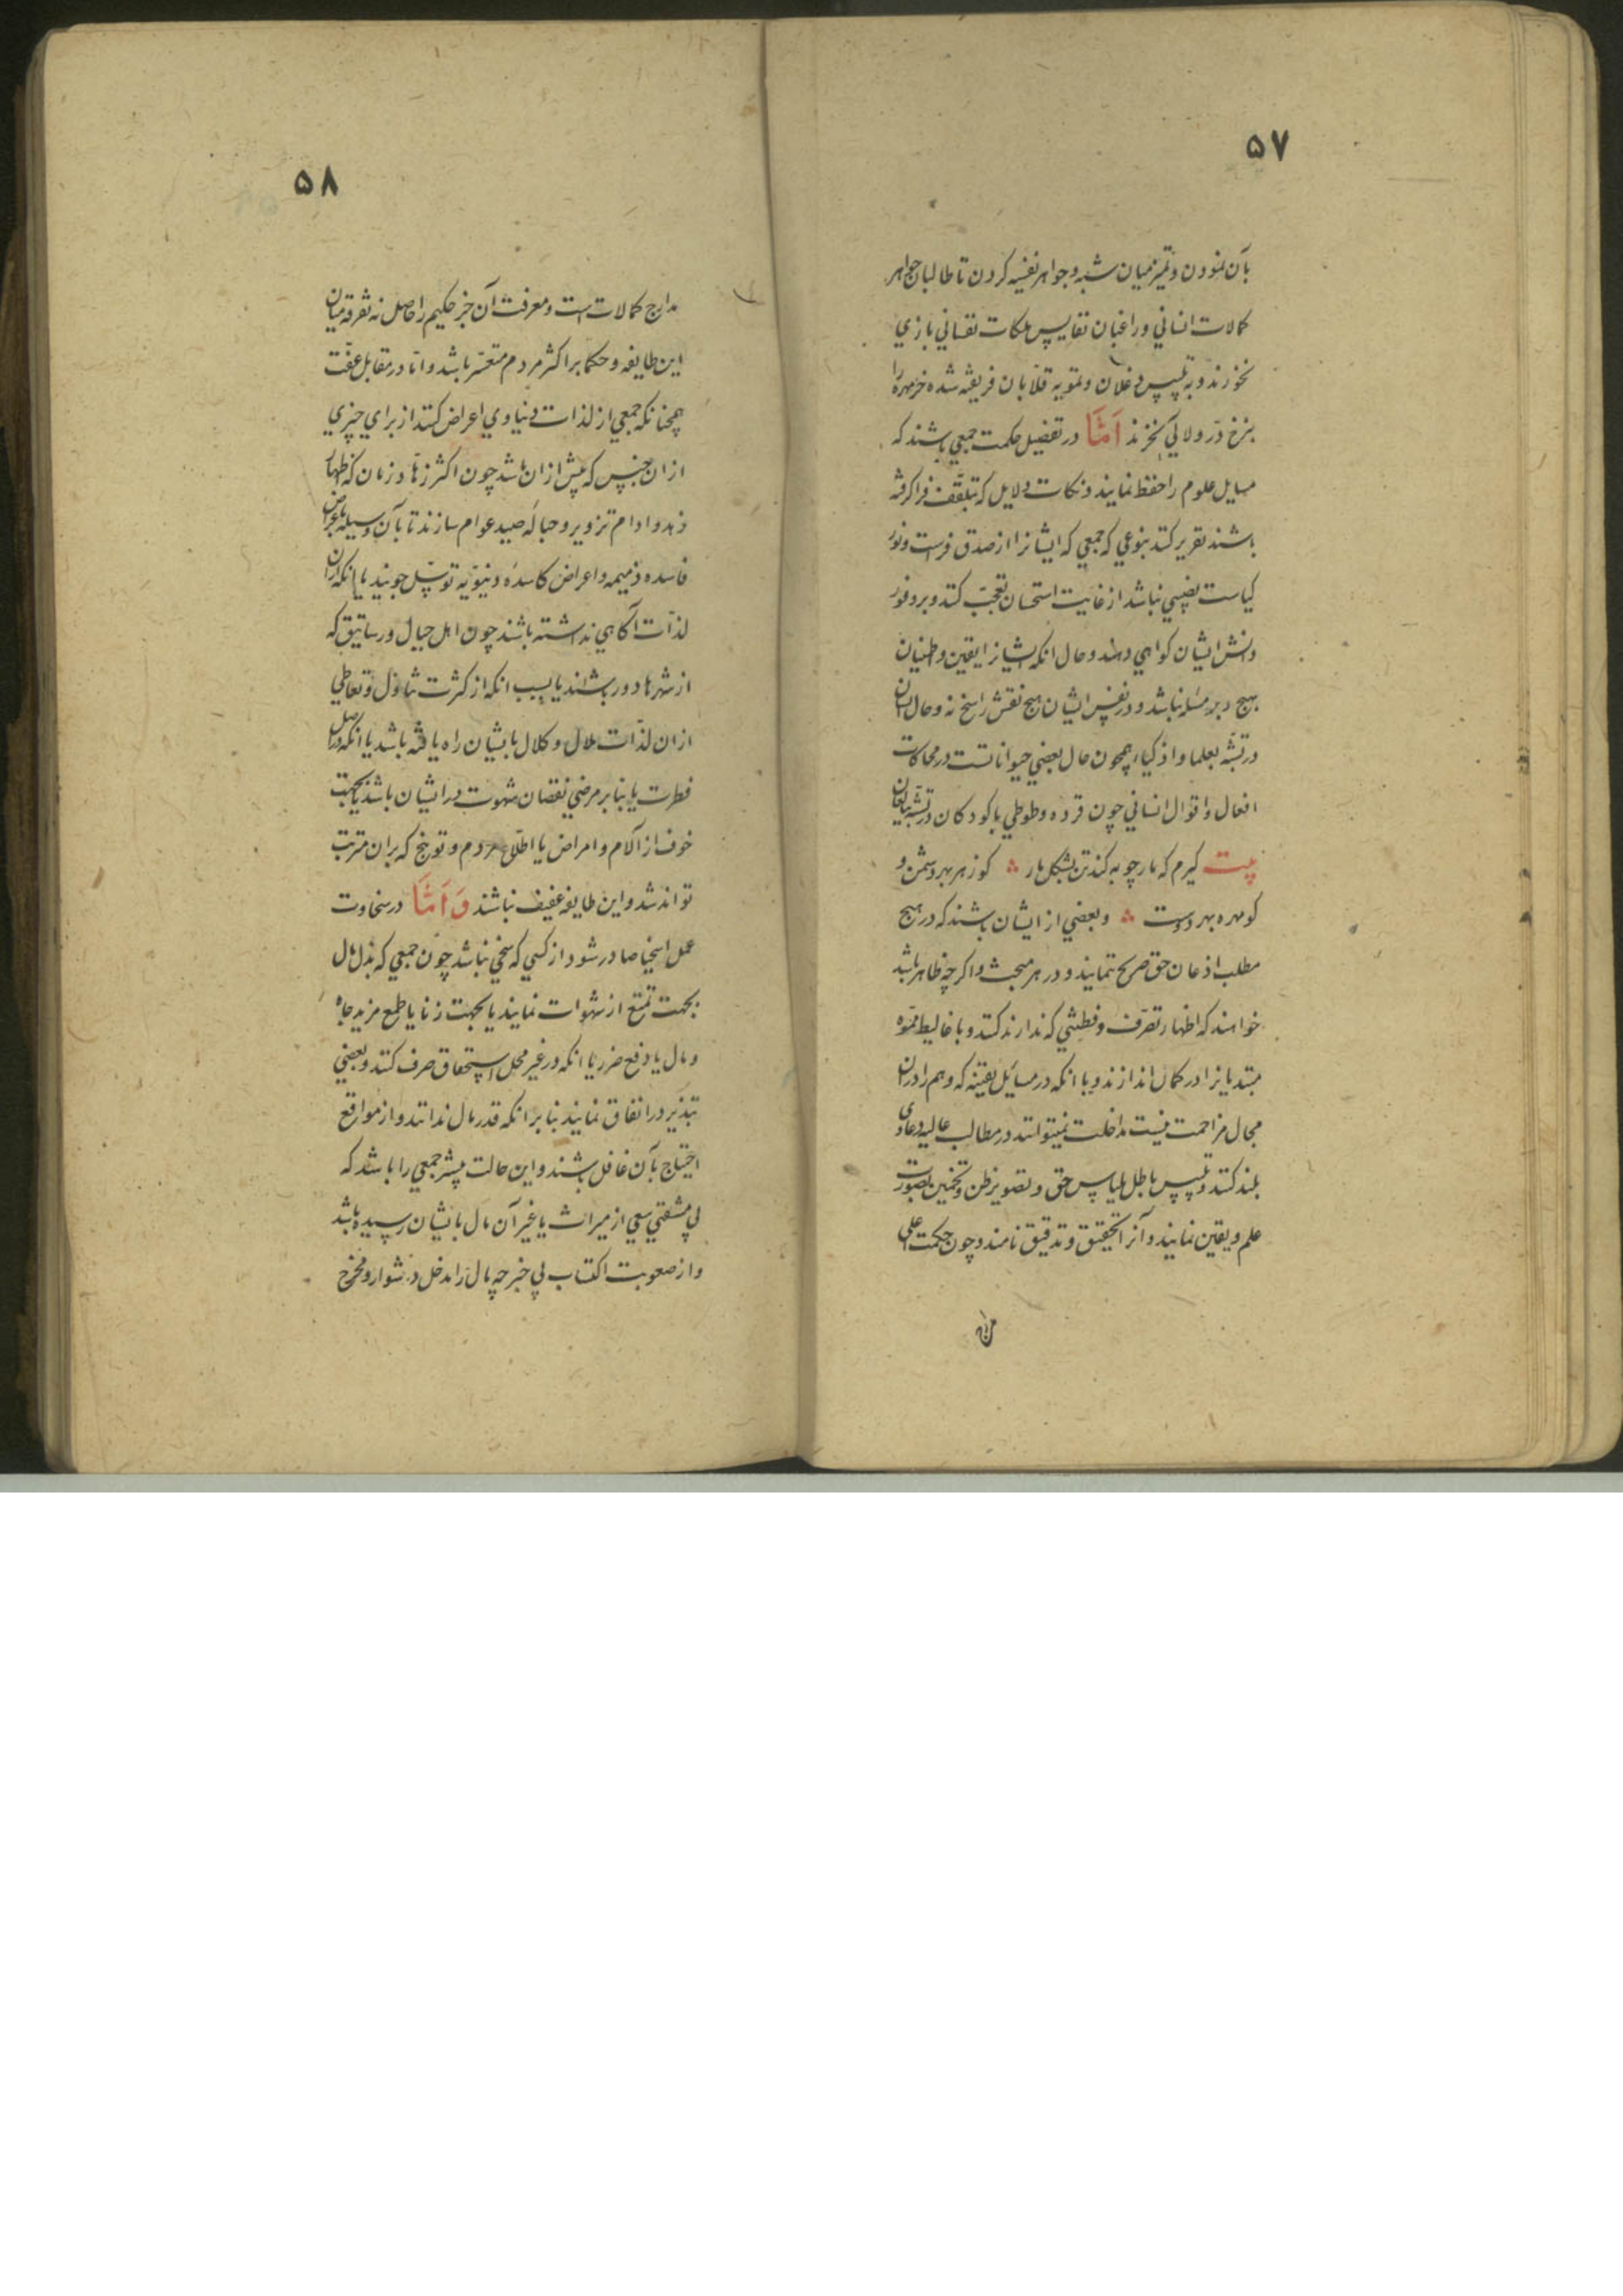 ۵۷
بآن نمودن و تمیز میان شبه و جواهر نفیسه کردن تا طالبان جواهر
کمالات انسانی و راغبان نفایس ملکات نفسانی بازی
نخورند و به تلبیس دغلان و تمویه قلابان فریفته شده خرمهره را
بنرخ در و لآلی نخرند اَمَّا در تفصیل حکمت جمعی باشند که
مسایل علوم را حفظ نمایند و نکات و دلایل که بتلقف فرا کرفته
باشند تقریر کنند بنوعی که جمعی که ایشانرا از صدق فراست و نور
کیاست نصیبی نباشد از غایت استحسان تعجب کنند و بر وفور
دانش ایشان کواهی دهند و حال انکه ایشانرا یقین و اطمینان
بهیچ مسئله نباشد و در نفس ایشان هیچ نقش راسخ نه و حال ایشان
در تشبه بعلما و اذکیاء همچون حال بعضی حیواناتست در محاکات
افعال و اقوال انسانی چون قرده و طوطی یا کودکان در تشبه ببالغان
بیت کیرم که مارچوبه کند تن بشکل مار ؞ کو زهر بهر دشمن و
کو مهره بهر دوست ؞ و بعضی از ایشان باشند که در هیچ
مطلب اذعان حق صریح ننمایند و در هر مبحث و اکرچه ظاهر باشد
خواهند که اظهار تصرف و فطنتی که ندارند کنند و باغالیط مموه
مبتدیانرا در کمان اندازند و با انکه در مسائل یقینه که وهم را در ان
مجال مزاحمت نیست مداخلت نمیتوانند در مطالب عالیه دعاوی
بلند کنند و تلبیس باطل بلباس حق و تصویر ظن و تخمین بصورت
علم و یقین نمایند و آنرا تحقیق و تدقیق نامند و چون حکمت اعلی
۵۸
مدارج کمالات است و معرفت آن جز حکیم را حاصل نه تفرقه میان
این طایفه و حکما بر اکثر مردم متعسر باشد و اما در مقابل عفت
همچنانکه جمعی از لذات دنیاوی اعراض کنند از برای چیزی
از ان جنس که بیش از ان باشد چون اکثر زهاد زمان که اظهار
زهد را دام تزویر و حباله صید عوام سازند تا بآن وسیله باغراض
فاسده ذمیمه و اعراض کاسده دنیویه توسل جویند یا انکه از ان
لذات آکاهی نداشته باشند چون اهل جبال و رساتیق که
از شهرها دور باشند یا بسبب انکه از کثرت تناول و تعاطی
از ان لذات ملال و کلال بایشان راه یافته باشد یا انکه در اصل
فطرت یا بنابر مرضی نقصان شهوت در ایشان باشد یا بجهت
خوف از آلام و امراض یا اطلاع مردم و توبیخ که بران مترتب
تواند شد و این طایفه عفیف نباشند وَ اَمَّا در سخاوت
عمل اسخیا صادر شود از کسی که سخی نباشد چون جمعی که بذل مال
بجهت تمتع از شهوات نمایند یا بجهت زنا یا طمع مزید جاه
و مال یا دفع ضرر یا انکه در غیر محل استحقاق صرف کنند و بعضی
تبذیر در انفاق نمایند بنابر انکه قدر مال ندانند و از مواقع
احتیاج بآن غافل باشند و این حالت بیشتر جمعی را باشد که
بی مشقتی سعی از میراث یا غیر آن مال بایشان رسیده باشد
و از صعوبت اکتساب بی خبر چه مال را مدخل دشوار و مخرج